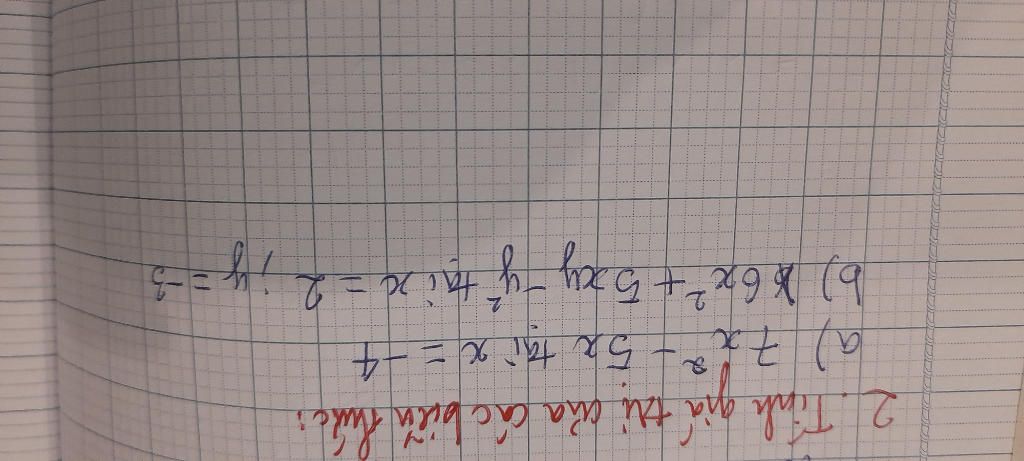 2. Tính giá trị của các biểu thức:
a) 7x² - 5x tại x = -4
b) 6x² + 5xy - y² tại x = 2 ; y = -3